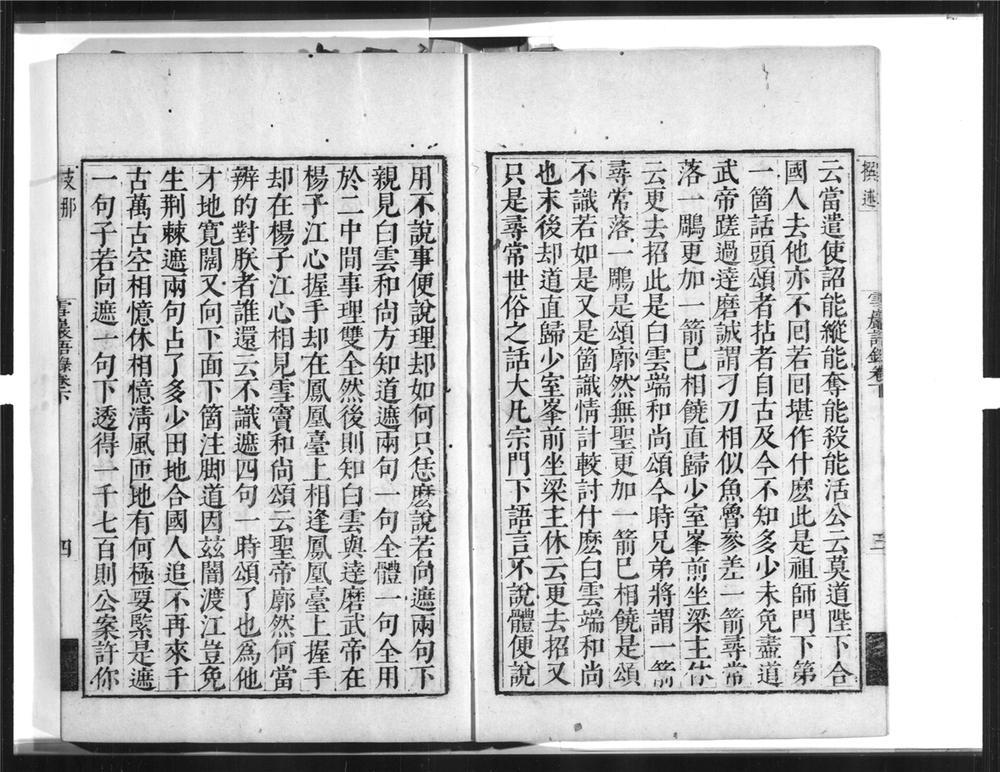 撰述
雪巖語錄卷下
三
云當遣使詔能縱能奪能殺能活公云莫道陛下合
國人去他亦不回若回堪作什麽此是祖師門下第
一箇話頭頌者拈者自古及今不知多少未免盡道
武帝蹉過達磨誠謂刁刀相似魚魯參差一箭尋常
落一鵰更加一箭已相饒直歸少室峯前坐梁主休
云更去招此是白雲端和尚頌今時兄弟將謂一箭
尋常落一鵰是頌廓然無聖更加一箭已相饒是頌
不識若如是又是箇識情計較討什麽白雲端和尚
也末後却道直歸少室峯前坐梁主休云更去招又
只是尋常世俗之話大凡宗門下語言不說體便說
用不說事便說理却如何只恁麽說若向遮兩句下
親見白雲和尚方知道遮兩句一句全體一句全用
於二中間事理雙全然後則知白雲與達磨武帝在
楊子江心握手却在鳳凰臺上相逢鳳凰臺上握手
却在楊子江心相見雪竇和尚頌云聖帝廓然何當
辨的對朕者誰還云不識遮四句一時頌了也為他
才地寬闊又向下面下箇注脚道因玆闇渡江豈免
生荆棘遮兩句占了多少田地合國人追不再來千
古萬古空相憶休相憶淸風匝地有何極要緊是遮
一句子若向遮一句下透得一千七百則公案許你
支那
雪巖語錄卷下
四